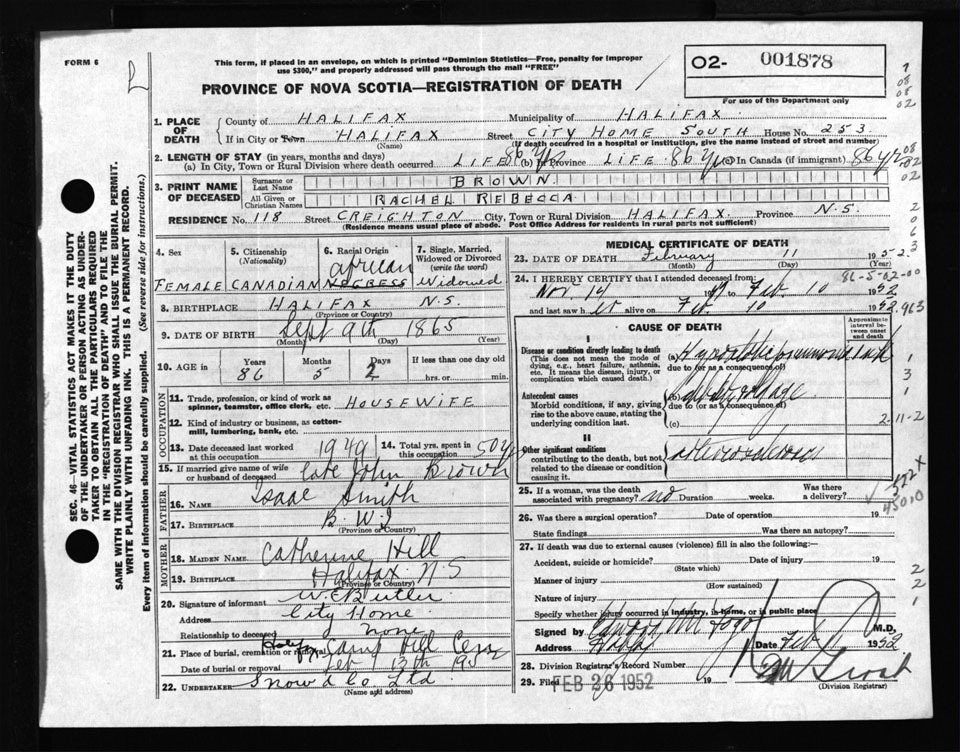 FORM 6
This form, if placed in an envelope, on which is printed "Dominion Statistics—Free, penalty for improper
use $300," and properly addressed will pass through the mail "FREE"
O2- 001878
For use of the Department only
PROVINCE OF NOVA SCOTIA—REGISTRATION OF DEATH
1. PLACE OF DEATH
County of HALIFAX Municipality of HALIFAX
If in City or Town HALIFAX Street CITY HOME SOUTH House No. 253
(Name) (If death occurred in a hospital or institution, give the name instead of street and number)
2. LENGTH OF STAY (in years, months and days)
(a) In City, Town or Rural Division where death occurred LIFE 86 Ys (b) in Province LIFE 86 Ys (c) In Canada (if immigrant) 86 yrs
3. PRINT NAME OF DECEASED
Surname or Last Name BROWN
All Given or Christian Names RACHEL REBECCA
RESIDENCE No. 118 Street CREIGHTON City, Town or Rural Division HALIFAX Province N.S.
(Residence means usual place of abode. Post Office Address for residents in rural parts not sufficient)
4. Sex FEMALE
5. Citizenship (Nationality) CANADIAN
6. Racial Origin african NEGRESS
7. Single, Married, Widowed or Divorced (write the word) Widowed
8. BIRTHPLACE HALIFAX N.S.
(Province or Country)
9. DATE OF BIRTH Sept 9th 1865
(Month) (Day) (Year)
10. AGE in Years 86 Months 5 Days 2 If less than one day old
hrs. or min.
OCCUPATION
11. Trade, profession, or kind of work as
spinner, teamster, office clerk, etc. HOUSEWIFE
12. Kind of industry or business, as cotton-
mill, lumbering, bank, etc.
13. Date deceased last worked at this occupation 1949
14. Total yrs. spent in this occupation 50 y
15. If married give name of wife
or husband of deceased late John Brown
FATHER
16. NAME Isaac Smith
17. BIRTHPLACE B.W.I
(Province or Country)
MOTHER
18. MAIDEN NAME Catherine Hill
19. BIRTHPLACE Halifax N.S
(Province or Country)
20. Signature of informant W.E. Butler
Address City Home
Relationship to deceased none
21. Place of burial, cremation or removal Halifax Camp Hill Cem
Date of burial or removal Feb 13th 195
22. UNDERTAKER Snow & Co. Ltd
(Name and address)
MEDICAL CERTIFICATE OF DEATH
23. DATE OF DEATH February 11 1952
(Month) (Day) (Year)
86-5-02-00
24. I HEREBY CERTIFY that I attended deceased from:
Nov 14 to Feb. 10 1952
and last saw h er alive on Feb. 10 1952
963
CAUSE OF DEATH
Approximate interval between onset and death
I
Disease or condition directly leading to death
(This does not mean the mode of
dying, e.g., heart failure, asthenia,
etc. It means the disease, injury, or
complication which caused death.)
(a) Hypostatic pneumonia
due to (or as a consequence of)
Antecedent causes
Morbid conditions, if any, giving
rise to the above cause, stating the
underlying condition last.
(b) age
due to (or as a consequence of)
(c)
2-11-2
II
Other significant conditions
contributing to the death, but not
related to the disease or condition
causing it.
arteriosclerosis
522X
45010
25. If a woman, was the death
associated with pregnancy? no Duration weeks. Was there a delivery?
26. Was there a surgical operation? Date of operation 19
State findings Was there an autopsy?
27. If death was due to external causes (violence) fill in also the following:—
Accident, suicide or homicide? Date of injury 19
(State which)
Manner of injury
(How sustained)
Nature of injury
Specify whether injury occurred in industry, in home, or in public place
Signed by M.D.
Address Halifax Date Feb 1952
28. Division Registrar's Record Number
29. Filed FEB 26 1952 19
(Division Registrar)
SEC. 46—VITAL STATISTICS ACT MAKES IT THE DUTY
OF THE UNDERTAKER OR PERSON ACTING AS UNDER-
TAKER TO OBTAIN ALL THE PARTICULARS REQUIRED
IN THE "REGISTRATION OF DEATH" AND TO FILE THE
SAME WITH THE DIVISION REGISTRAR WHO SHALL ISSUE THE BURIAL PERMIT.
WRITE PLAINLY WITH UNFADING INK. THIS IS A PERMANENT RECORD.
Every item of information should be carefully supplied. (See reverse side for instructions.)